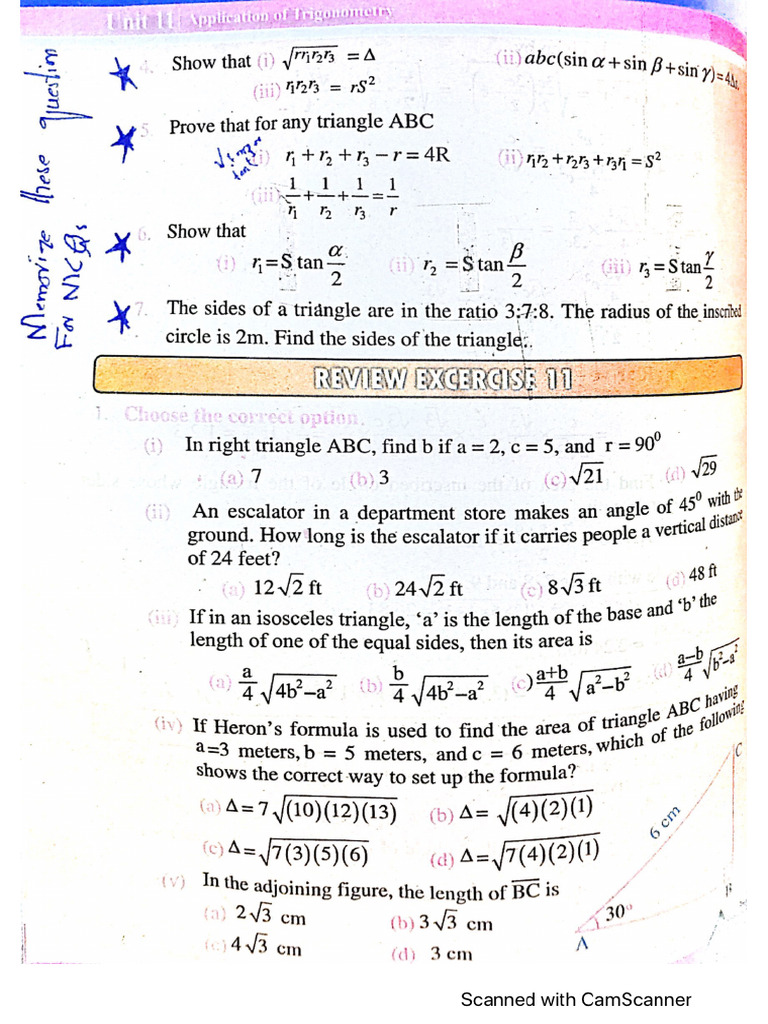 Unit 11 | Application of Trigonometry
4. Show that (i) √rr₁r₂r₃ = Δ (ii) abc(sin α + sin β + sin γ) = 4Δs.
(iii) r₁r₂r₃ = rS²
5. Prove that for any triangle ABC
(i) r₁ + r₂ + r₃ − r = 4R (ii) r₁r₂ + r₂r₃ + r₃r₁ = S²
(iii) 1/r₁ + 1/r₂ + 1/r₃ = 1/r
6. Show that
(i) r₁ = S tan α/2 (ii) r₂ = S tan β/2 (iii) r₃ = S tan γ/2
7. The sides of a triangle are in the ratio 3:7:8. The radius of the inscribed
circle is 2m. Find the sides of the triangle.
Memorize these question
For MCQs
REVIEW EXCERCISE 11
1. Choose the correct option.
(i) In right triangle ABC, find b if a = 2, c = 5, and r = 90⁰
(a) 7 (b) 3 (c) √21 (d) √29
(ii) An escalator in a department store makes an angle of 45⁰ with the
ground. How long is the escalator if it carries people a vertical distance
of 24 feet?
(a) 12√2 ft (b) 24√2 ft (c) 8√3 ft (d) 48 ft
(iii) If in an isosceles triangle, ‘a’ is the length of the base and ‘b’ the
length of one of the equal sides, then its area is
(a) a/4 √4b²−a² (b) b/4 √4b²−a² (c) a+b/4 √a²−b² (d) a−b/4 √b²−a²
(iv) If Heron's formula is used to find the area of triangle ABC having
a=3 meters, b = 5 meters, and c = 6 meters, which of the following
shows the correct way to set up the formula?
(a) Δ = 7√(10)(12)(13) (b) Δ = √(4)(2)(1)
(c) Δ = √7(3)(5)(6) (d) Δ = √7(4)(2)(1)
(v) In the adjoining figure, the length of BC is
(a) 2√3 cm (b) 3√3 cm
(c) 4√3 cm (d) 3 cm
C
6 cm
30⁰
A
B
Scanned with CamScanner